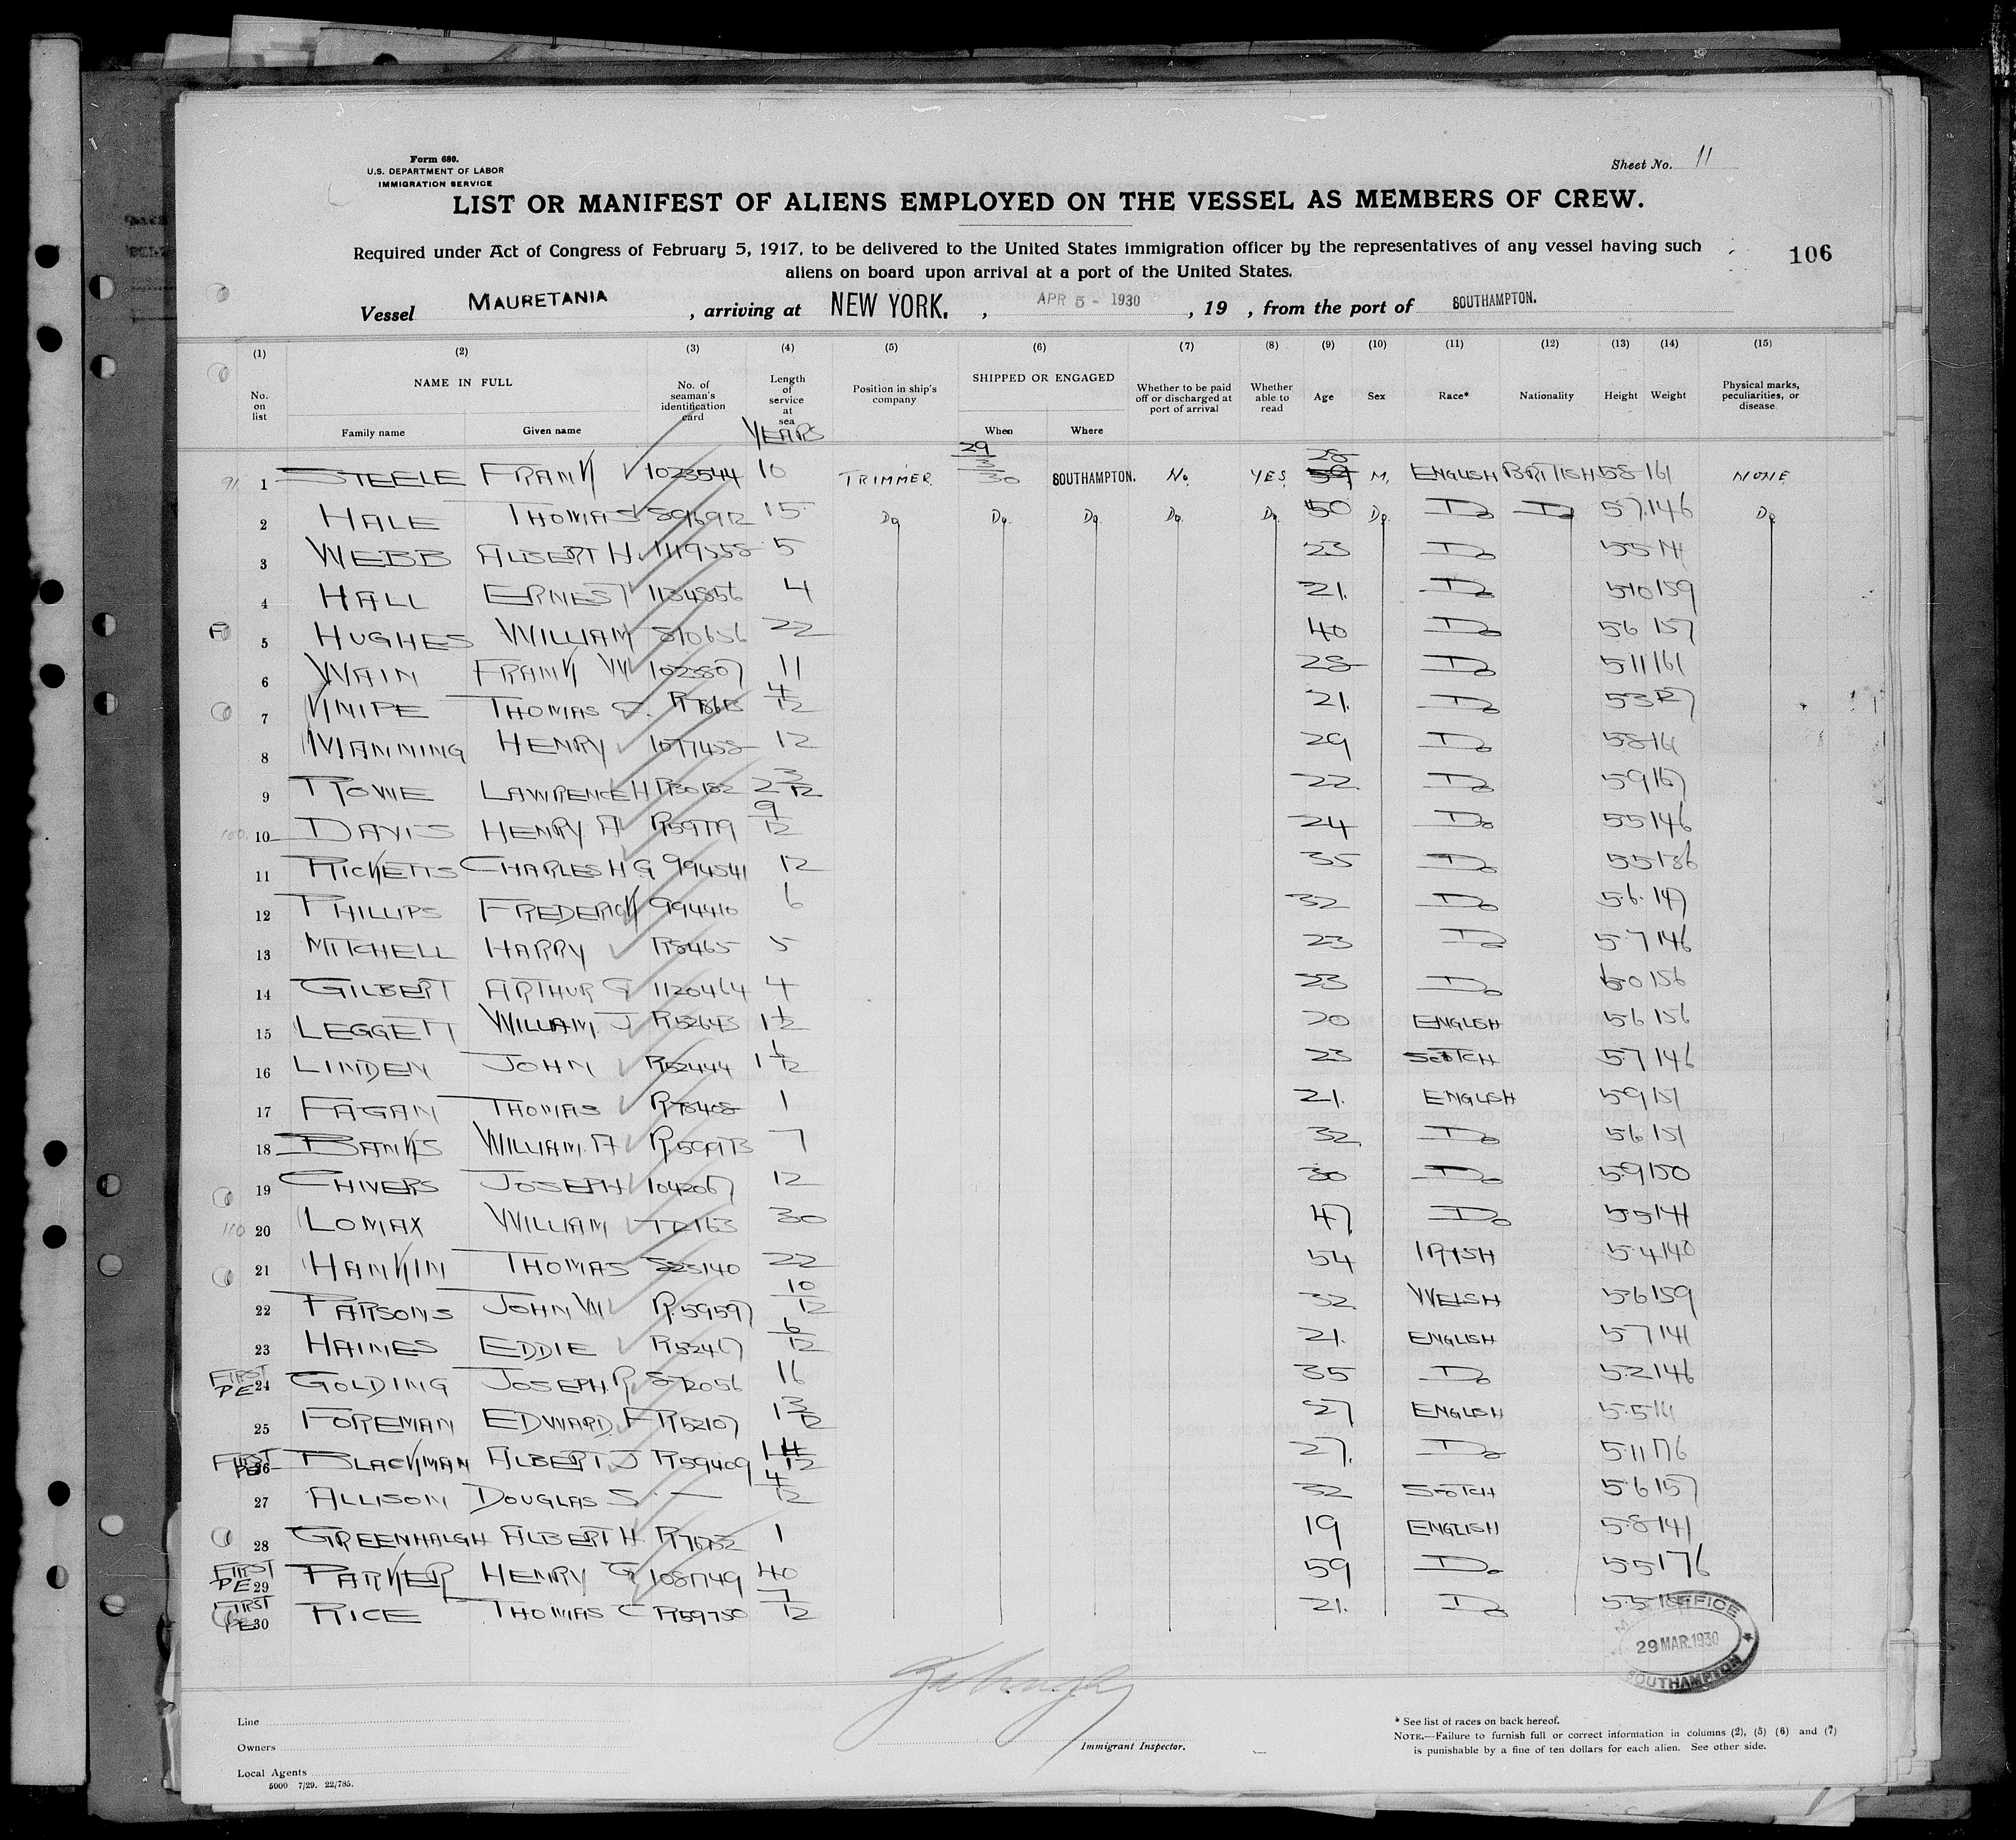 Form 680.
U.S. DEPARTMENT OF LABOR
IMMIGRATION SERVICE
Sheet No. 11
LIST OR MANIFEST OF ALIENS EMPLOYED ON THE VESSEL AS MEMBERS OF CREW.
Required under Act of Congress of February 5, 1917, to be delivered to the United States immigration officer by the representatives of any vessel having such
aliens on board upon arrival at a port of the United States.
106
Vessel MAURETANIA , arriving at NEW YORK. , APR 5 - 1930 , 19 , from the port of SOUTHAMPTON.
(1) (2) (3) (4) (5) (6) (7) (8) (9) (10) (11) (12) (13) (14) (15)
No. on list NAME IN FULL Family name Given name No. of seaman's identification card Length of service at sea YEARS Position in ship's company SHIPPED OR ENGAGED When Where Whether to be paid off or discharged at port of arrival Whether able to read Age Sex Race* Nationality Height Weight Physical marks, peculiarities, or disease
91 1 STEELE FRANK 1023544 10 TRIMMER 29/3/30 SOUTHAMPTON. No YES 28 M. ENGLISH BRITISH 58 161 NONE
2 HALE THOMAS 896912 15 Do Do. Do. Do. Do 50 Do. Do Do 57 146 Do
3 WEBB ALBERT H. 1119558 5 23 Do 55
4 HALL ERNEST 1134856 4 21. Do 510 159
5 HUGHES WILLIAM 810656 22 40 Do 56 157
6 WAIN FRANK W 1023807 11 28 Do 511 161
7 KNIPE THOMAS 4/12 21. Do 53
8 MANNING HENRY 1077458 12 29 Do 58
9 ROWE LAWRENCE H R30182 2 3/12 22 Do 59 167
100 10 DAVIS HENRY A R59779 9/12 24 Do 55 146
11 RICKETTS CHARLES H G 994541 12 35 Do 55 136
12 PHILLIPS FREDERICK 994410 6 32 Do 5.6. 147
13 MITCHELL HARRY R8465 5 23 Do 5.7 146
14 GILBERT ARTHUR G 1120464 4 23 Do 60 156
15 LEGGETT WILLIAM J R52643 1 1/2 20 ENGLISH 56 156
16 LINDEN JOHN R52444 1 1/2 23 SCOTCH 5.7 146
17 FAGAN THOMAS R78408 1 21. ENGLISH 59 151
18 BANKS WILLIAM. A 7 32 Do 56 151
19 CHIVERS JOSEPH 1042067 12 30 Do 5.9 150
110 20 LOMAX WILLIAM 30 47 Do 55 141
21 HANKIN THOMAS 825140 22 54 IRISH 5.4 140
22 PARSONS JOHN W R.59597 10/12 32 WELSH 56 159
23 HAINES EDDIE R52467 6/12 21. ENGLISH 57 141
FIRST PE 24 GOLDING JOSEPH. R 16 35 Do 52 146
25 FOREMAN EDWARD. F R52107 1 3/12 27 ENGLISH 5.5
FIRST PE 26 BLACKMAN ALBERT J R59409 27. Do 511 176
27 ALLISON DOUGLAS S. — 4/12 32 SCOTCH 5.6 157
28 GREENHALGH ALBERT H 1 19 ENGLISH 58 141
FIRST PE 29 PARKER HENRY G 1087749 40 59 Do. 55 176
FIRST PE 30 RICE THOMAS C R59750 7/12 21. Do 5.5
OFFICE
29 MAR. 1930
SOUTHAMPTON
Line
Owners
Local Agents
5000 7/29. 22/785.
Immigrant Inspector.
* See list of races on back hereof.
NOTE.—Failure to furnish full or correct information in columns (2), (5) (6) and (7)
is punishable by a fine of ten dollars for each alien. See other side.